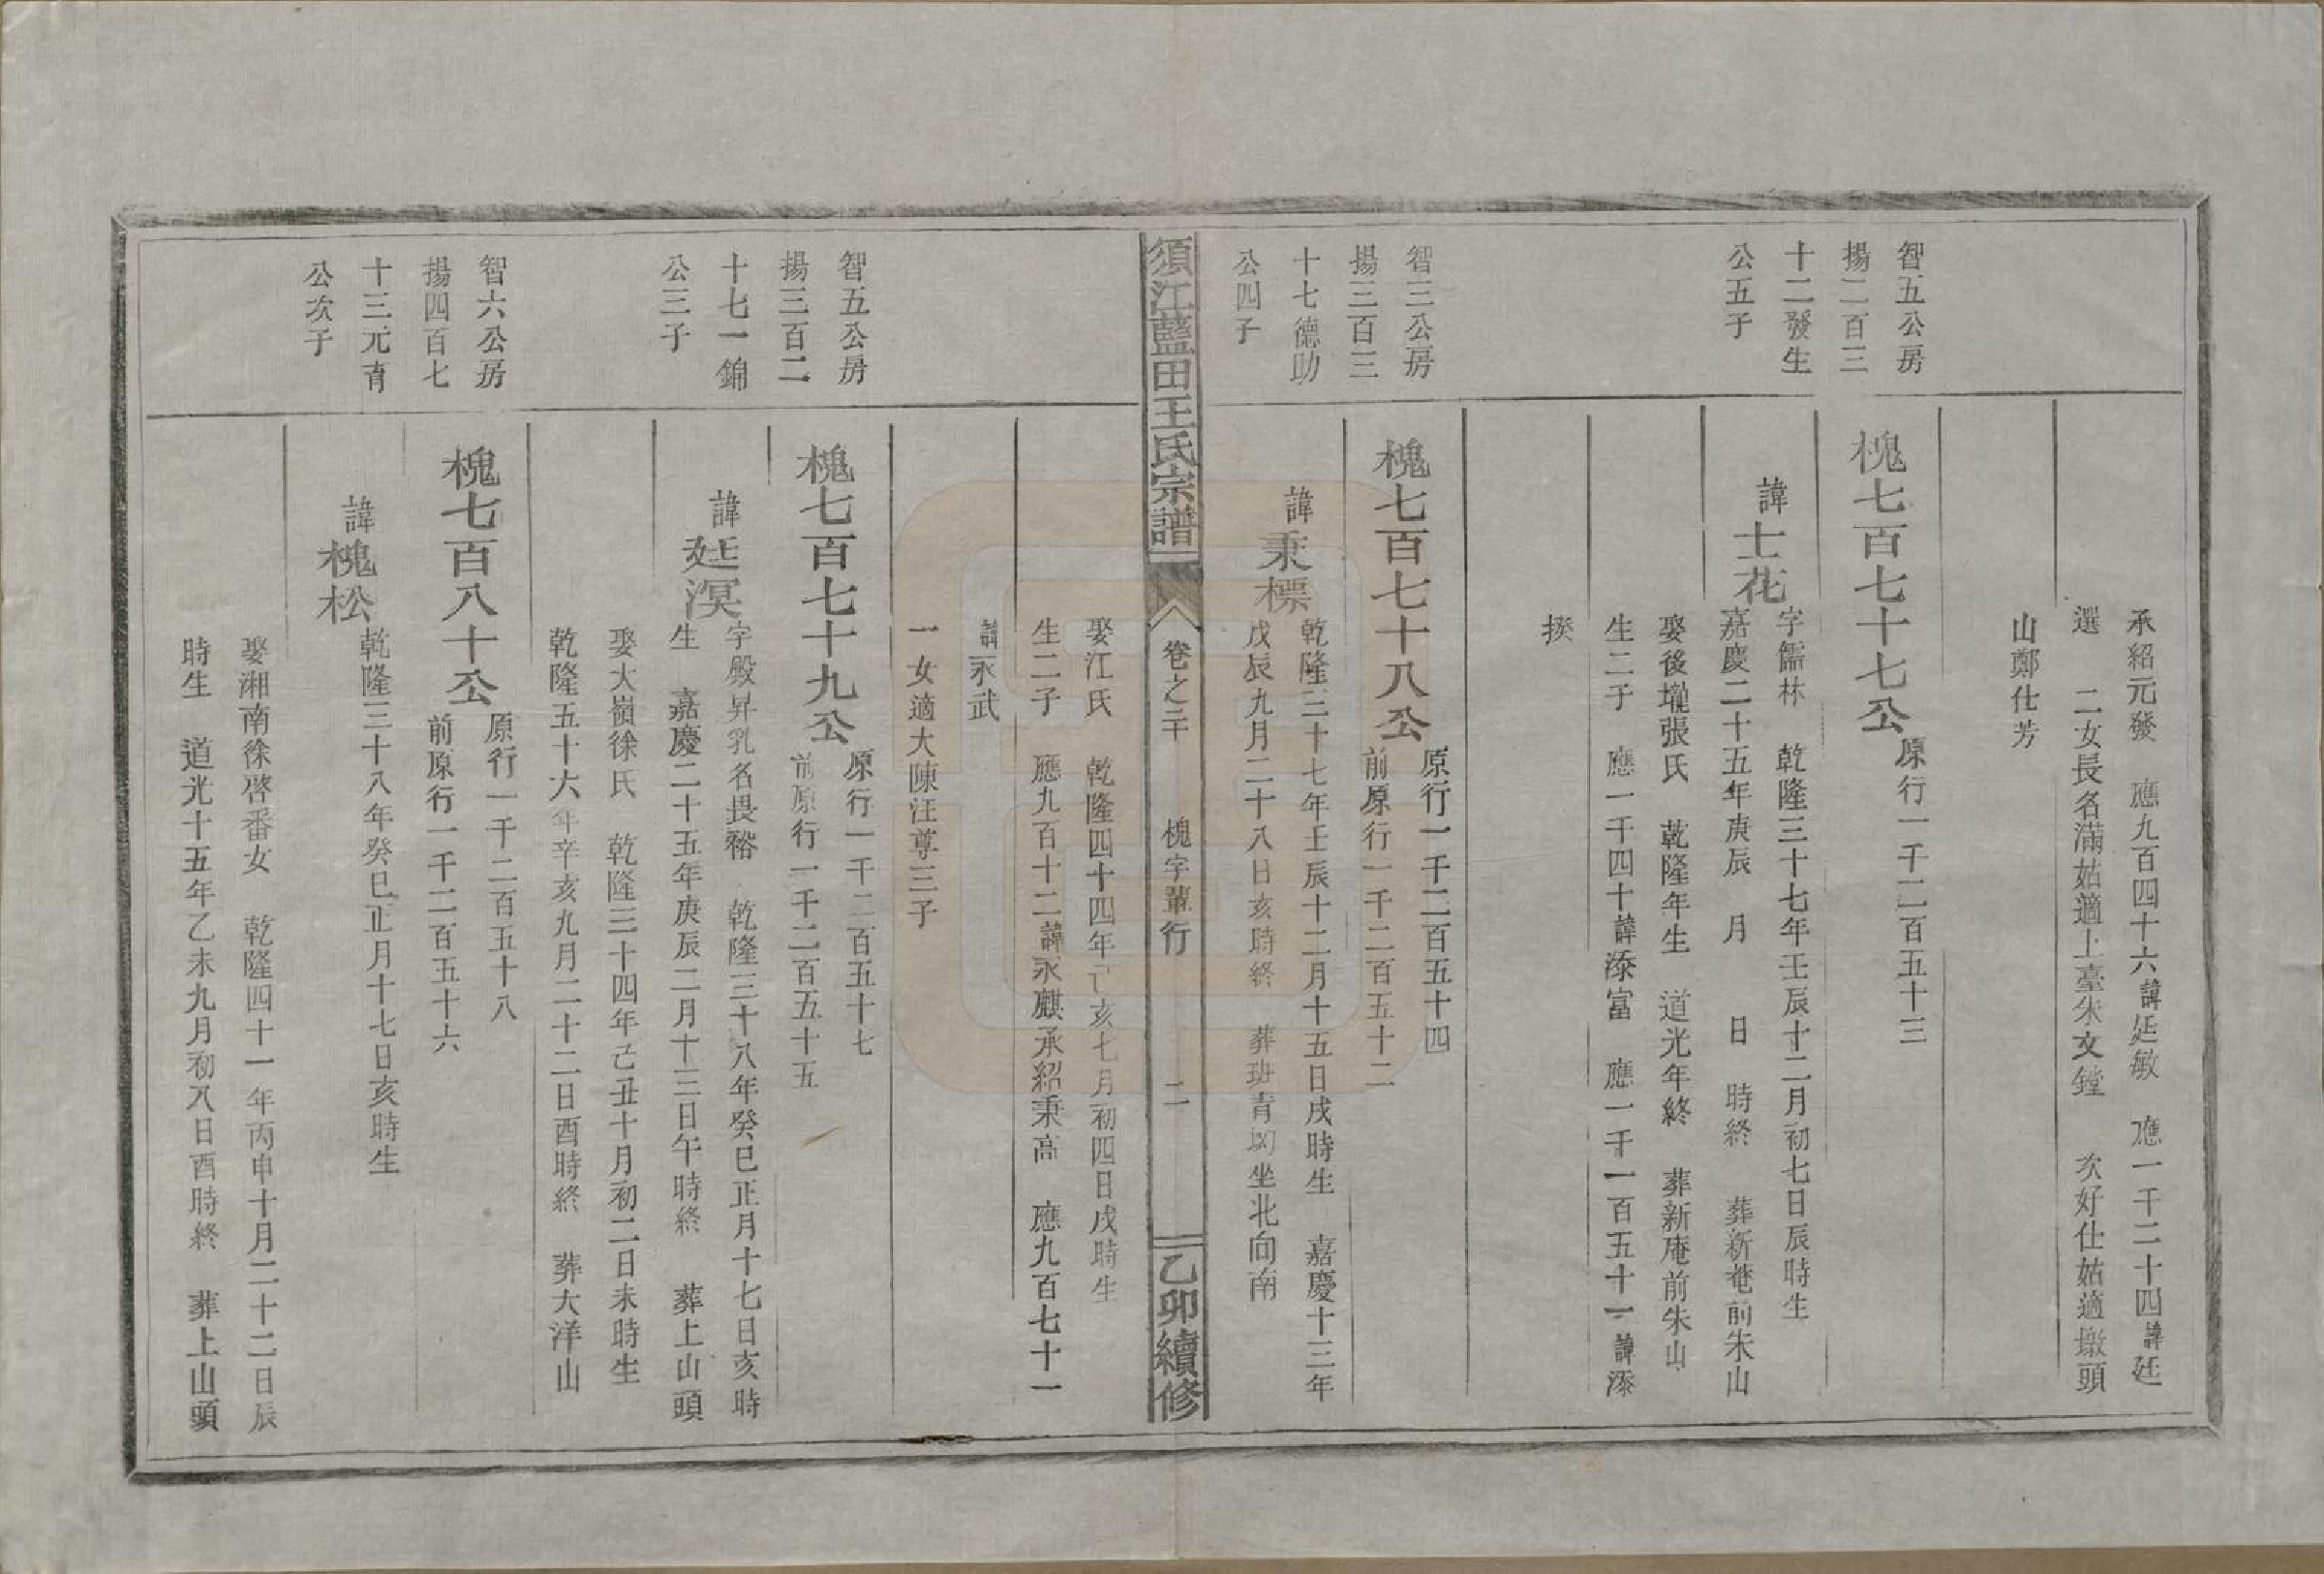 承紹元發　應九百四十六諱廷敏　應一千二十四諱廷
選　二女長名滿姑適上臺朱文鏜　次好仕姑適墩頭
山鄭仕芳
智五公房
揚二百三
十二發生
公五子
槐七百七十七公
原行一千二百五十三
諱士花
字儒林　乾隆三十七年壬辰十二月初七日辰時生
嘉慶二十五年庚辰　月　日　時終　葬新菴前朱山
娶後壠張氏　乾隆年生　道光年終　葬新庵前朱山
生二子　應一千四十諱添富　應一千一百五十一諱添
揆
智三公房
揚三百三
十七德助
公四子
槐七百七十八公
原行一千二百五十四
前原行一千二百五十二
諱秉標
乾隆三十七年壬辰十二月十五日戌時生　嘉慶十三年
戊辰九月二十八日亥時終　葬班青塢坐北向南
須江藍田王氏宗譜
卷之三十　槐字輩行　二
乙卯續修
娶江氏　乾隆四十四年己亥七月初四日戌時生
生二子　應九百十二諱永麒承紹秉高　應九百七十一
諱永武
一女適大陳汪尊三子
智五公房
揚三百二
十七一錦
公三子
槐七百七十九公
原行一千二百五十七
前原行一千二百五十五
諱廷溟
字殿昇乳名畏豁　乾隆三十八年癸巳正月十七日亥時
生　嘉慶二十五年庚辰二月十三日午時終　葬上山頭
娶大嶺徐氏　乾隆三十四年己丑十月初二日未時生
乾隆五十六年辛亥九月二十二日酉時終　葬大洋山
智六公房
揚四百七
十三元育
公次子
槐七百八十公
原行一千二百五十八
前原行一千二百五十六
諱槐松
乾隆三十八年癸巳正月十七日亥時生
娶湘南徐啓番女　乾隆四十一年丙申十月二十二日辰
時生　道光十五年乙未九月初八日酉時終　葬上山頭